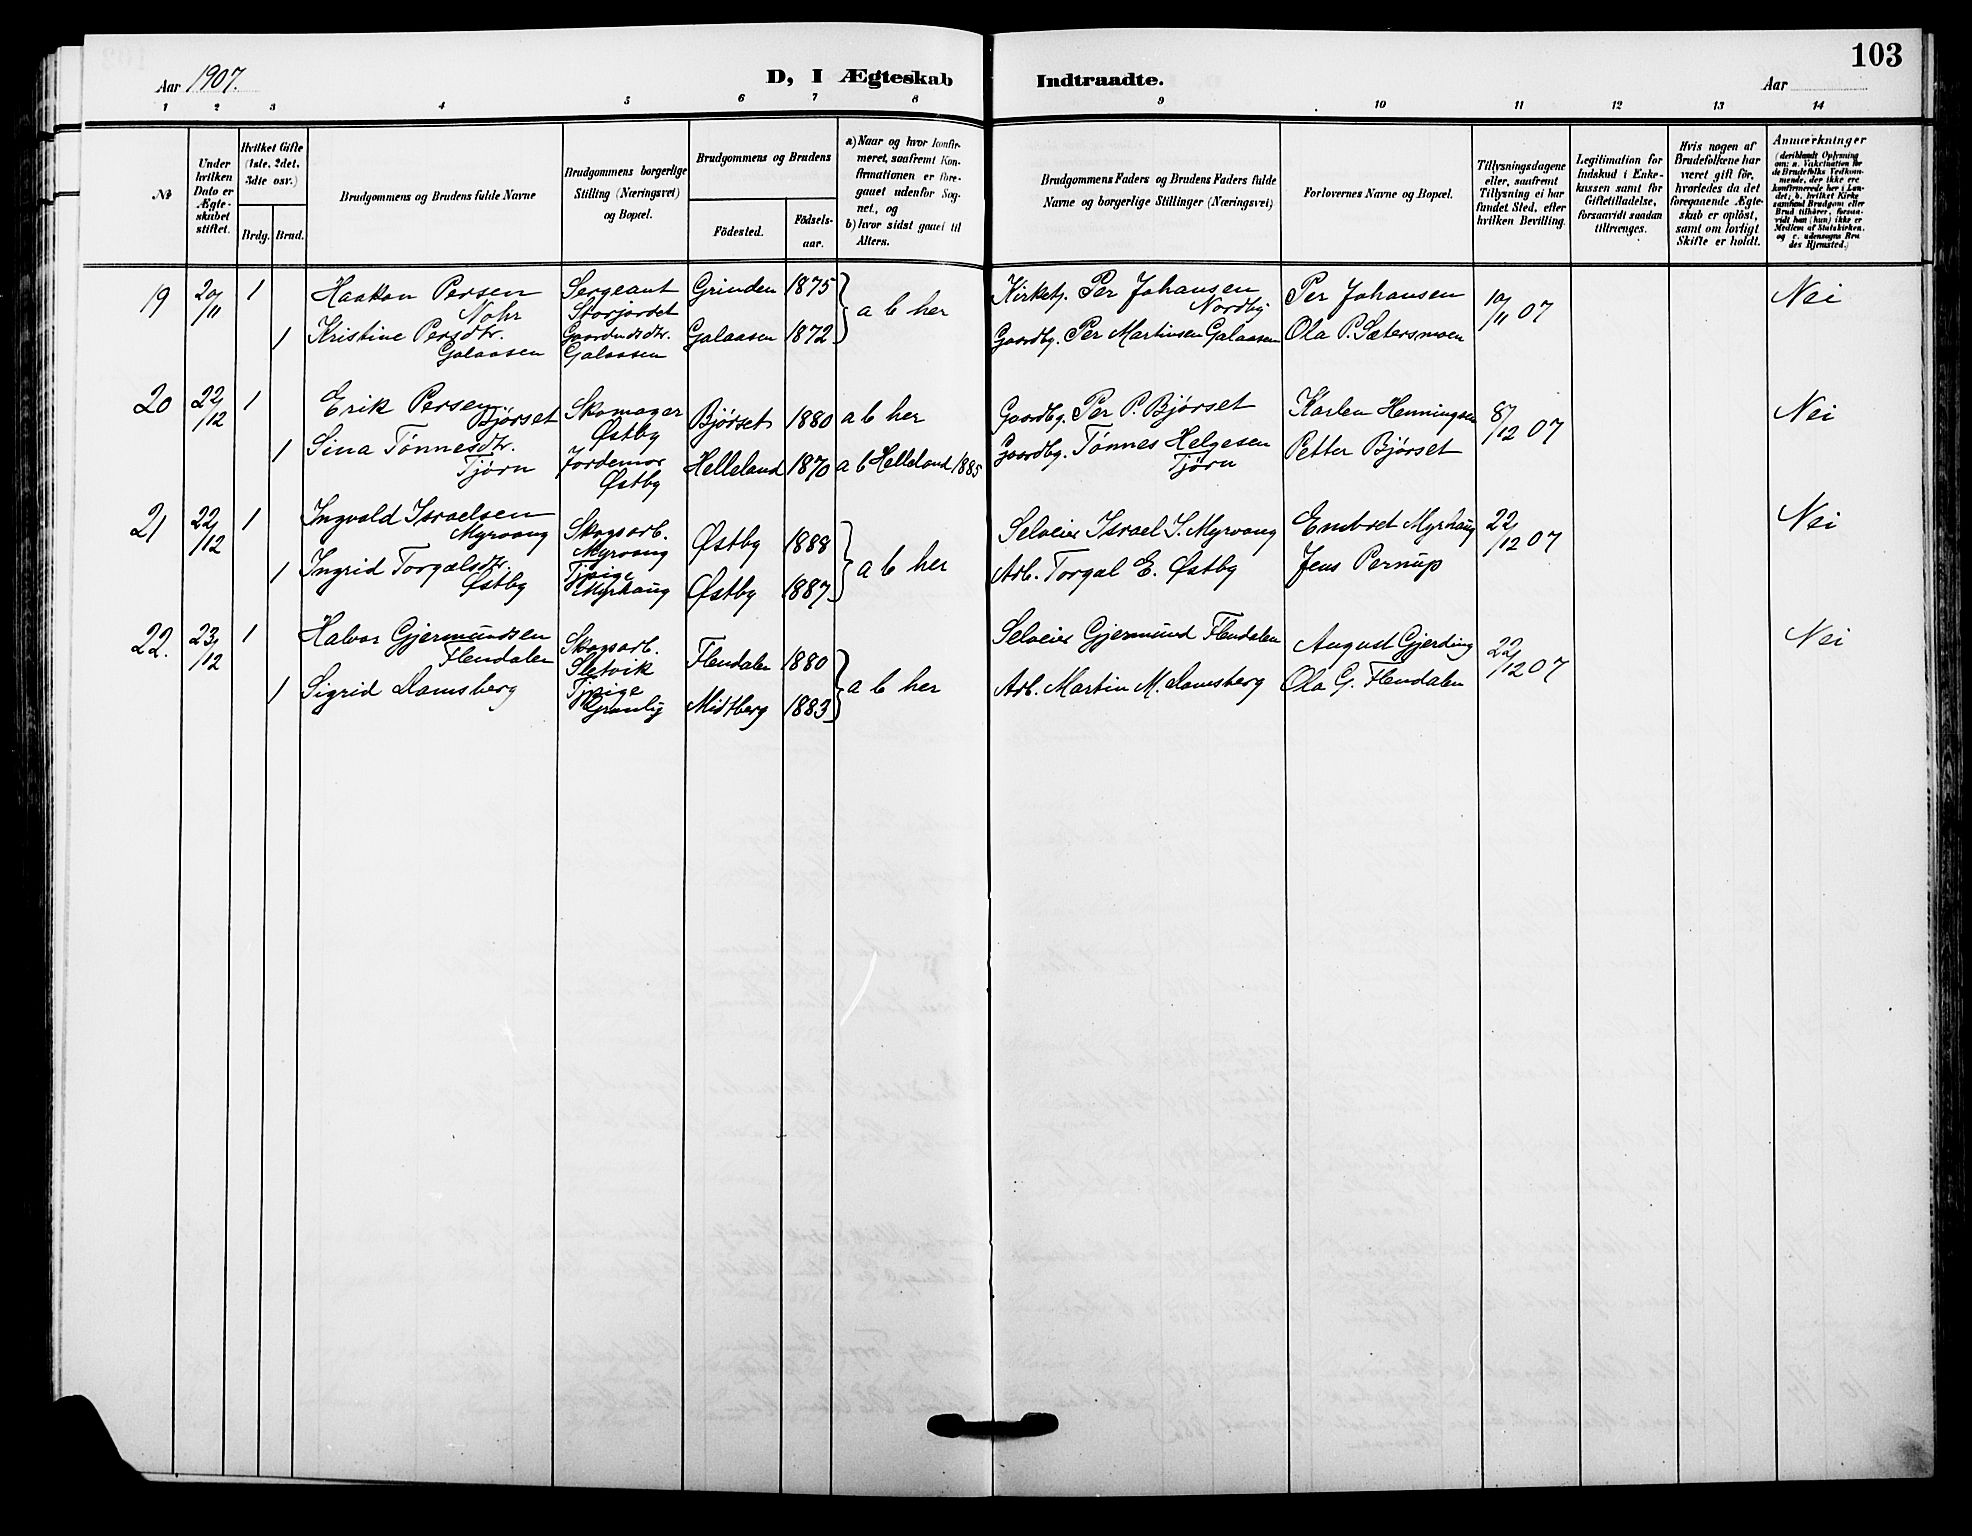 103
Aar 1907. D, I Ægteskab Indtraadte. Aar
1 2 3 4 5 6 7 8 9 10 11 12 13 14
№
Under hvilken Dato er Ægteskabet stiftet.
Hvilket Gifte (1ste, 2det, 3dte osv.)
Brdg. Brud.
Brudgommens og Brudens fulde Navne
Brudgommens borgerlige Stilling (Næringsvei) og Bopæl.
Brudgommens og Brudens
Födested. Födsels-aar.
a) Naar og hvor konfirmeret, saafremt Konfirmationen er foregaaet udenfor Sognet, og
b) hvor sidst gaaet til Alters.
Brudgommens Faders og Brudens Faders fulde Navne og borgerlige Stillinger (Næringsvei)
Forlovernes Navne og Bopæl.
Tillysningsdagene eller, saafremt Tillysning ei har fundet Sted, efter hvilken Bevilling.
Legitimation for Indskud i Enkekassen samt for Giftetilladelse, forsaavidt saadan tiltrænges.
Hvis nogen af Brudefolkene har været gift för, hvorledes da det foregaaende Ægteskab er oplöst, samt om lovligt Skifte er holdt.
Anmærkninger
(deriblandt Oplysning om: a. Vakcination for de Brudefolks Vedkommende, der ikke ere konfirmerede her i Landet; b. hvilket Kirkesamfund Brudgom eller Brud tilhører, forsaavidt han (hun) ikke er Medlem af Statskirken, og c. udensogns Brudes Hjemsted.)
19 20/11 1 Haakon Persen Sergeant Grinden 1875 a b her Kirketj. Per Johansen Per Johansen 10/11 07 Nei
Nohr Storjordet Nordby
1 Kristine Persdtr. Gaardmdsdtr. Galaasen 1872 Gaardbg. Per Martinsen Galaasen Ola P. Sætersmoen
Galaasen Galaasen
20 22/12 1 Erik Persen Skomager Bjørset 1880 a b her Gaardbg. Per P. Bjørset Karlen Henningsen 8/12 07 Nei
Bjørset Østby
1 Sina Tønnesdtr. Jordemor Helleland 1870 a b Helleland 1885 Gaardbg. Tønnes Helgesen Petter Bjørset
Tjørn Østby Tjørn
21 22/12 1 Ingvald Israelsen Skogsarb. Østby 1888 a b her Selveier Israel I. Myrvang Embret Myrhaug 22/12 07 Nei
Myrvang Myrvang
1 Ingrid Torgalsdtr. Tjpige Østby 1887 Arb. Torgal E. Østby Jens Pernup
Østby Myrhaug
22. 23/12 1 Halvor Gjermundsen Skogsarb. Flendalen 1880 a b her Selveier Gjermund Flendalen August Gjerding 22/12 07 Nei
Flendalen Sletvik
1 Sigrid Damsberg Tjpige Midtberg 1883 Arb. Martin M. Damsberg Ola G. Flendalen
Granlig